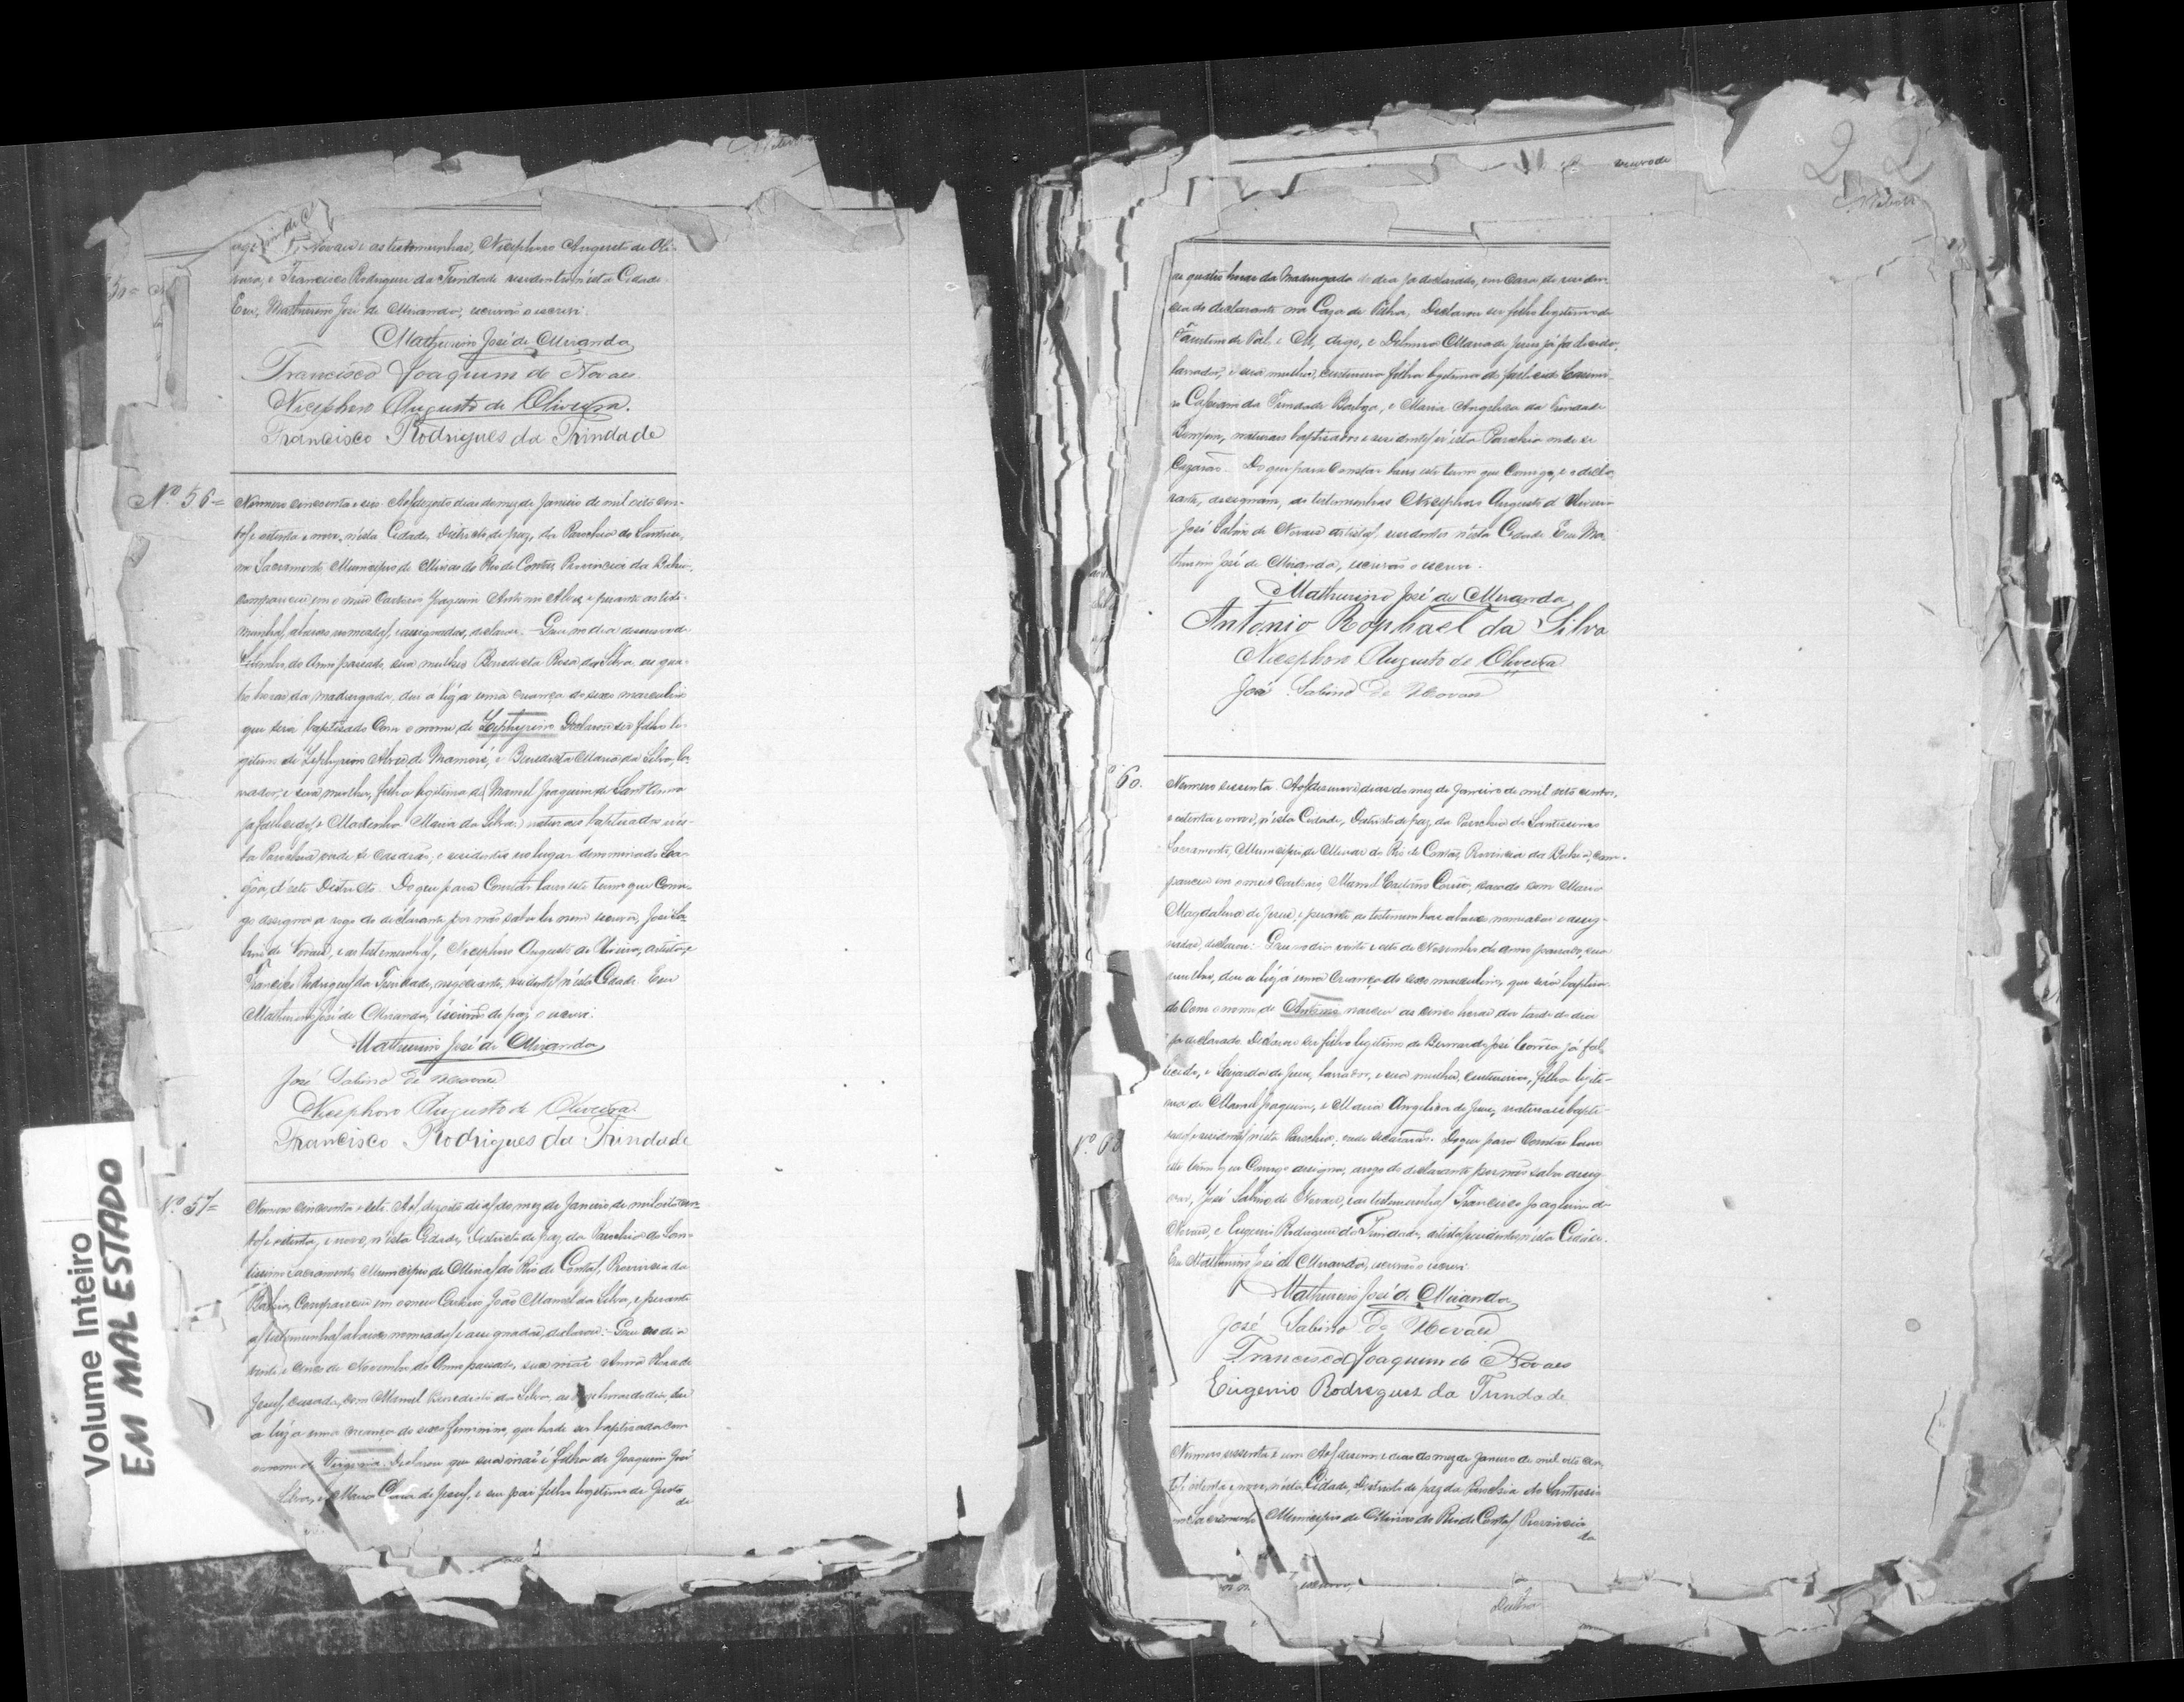 Novaes e as testemunhas, Nicephoro Augusto de Oli-
veira, e Francisco Rodrigues da Trindade residentes n'esta Cidade.
Eu, Mathurino José de Miranda, escrivão o escrevi.
Mathurino José de Miranda
Francisco Joaquim de Novaes
Nicephoro Augusto de Oliveira.
Francisco Rodrigues da Trindade
Nº 56=
Numero cincoenta e seis. Aos dezoito dias do mez de Janeiro de mil oito cen-
tos e setenta e nove, n'esta Cidade, Districto de paz, da Parochia do Santissi-
mo Sacramento, Municipio de Minas do Rio de Contas, Provincia da Bahia,
compareceu em o meu Cartorio Joaquim Antonio Alves, e perante as teste-
munhas abaixo nomeadas, e assignadas, declarou: Que no dia dezenove de
Setembro do Anno passado, sua mulher Benedicta Rosa da Silva, as qua-
tro horas da madrugada, deu á luz a uma criança do sexo masculino
que será baptisado Com o nome de Zephyrino. Declarou ser filho le-
gitimo de Zephyrino Alves de , e Benedicta Maria da Silva, la-
vrador, e sua mulher, filha legitima de Manoel Joaquim de Sant'Anna
ja fallecido, e Martinha Maria da Silva, naturaes baptisados n'es-
ta Parochia, onde se casarão, e residentes no lugar denominado La-
gôa, d'este Districto. Do que para Constar lavro este termo que Comi-
go assigna a rogo do declarante, por não saber ler nem escrever, José Sa-
bino de Novaes, e as testemunhas, Nicephoro Augusto de Oliveira, artista, e
Francisco Rodrigues da Trindade, negociante, residentes n'esta Cidade. Eu
Mathurino José de Miranda, escrivão de paz o escrevi.
Mathurino José de Miranda
José Sabino de Novaes
Nicephoro Augusto de Oliveira.
Francisco Rodrigues da Trindade
Nº 57=
Numero cincoenta e sete. Aos dezoito dias do mez de Janeiro de mil oito cen-
tos e setenta, e nove, n'esta Cidade, Districto de paz da Parochia do San-
tissimo Sacramento Municipio de Minas do Rio de Contas, Provincia da
Bahia, Compareceu em o meu Cartorio João Manoel da Silva, e perante
as testemunhas abaixo nomeadas e assignadas, declarou: Que no dia
vinte e cinco de Novembro do Anno passado, sua mãe Anna de
Jesus, casada, com Manoel Benedicto da Silva, as horas do dia, deu
a luz a uma criança do sexo feminino, que hade ser baptisada com
o nome de Virginia. Declarou que sua mãe é filha de Joaquim José
Silva, e Maria Clara de Jesus, e seu pai filho legitimo de
de
Volume Inteiro
EM MAL ESTADO
22
as quatro horas da Madrugada do dia ja declarado, em Casa de residen-
cia do declarante na Caza de Palha. Declarou ser filho legitimo de
digo, e Maria de Jesus já
lavrador, e sua mulher, costureira filha legitima do fallecido
da Trindade Barboza, e Maria Angelica da Trindade
Bomfim, naturaes baptisados e residentes n'esta Parochia onde se
Cazarão. Do que para Constar lavro este termo que Comigo, e o decla-
rante, assignam, as testemunhas Nicephoro Augusto d'Oliveira
José Sabino de Novaes artistas, residentes n'esta Cidade. Eu Ma-
thurino José de Miranda, escrivão o escrevi.
Mathurino José de Miranda
Antonio Raphael da Silva
Nicephoro Augusto de Oliveira
José Sabino de Novaes
60.
Numero sessenta. Aos dezenove dias do mez de Janeiro de mil oito centos,
e setenta e nove, n'esta Cidade, Districto de paz, da Parochia do Santissimo
Sacramento, Municipio de Minas do Rio de Contas, Provincia da Bahia, com-
pareceu em o meu Cartorio, Manoel Caetano Corrêa, casado com Maria
Magdalena de Jesus, e perante as testemunhas abaixo nomeadas e assig-
nadas, declarou: Que no dia vinte e oito de Novembro do anno passado, sua
mulher, deu a luz á uma Criança do sexo masculino, que será baptisa-
do Com o nome de Antonio, nasceu as cinco horas da tarde do dia
ja declarado. Declarou ser filho legitimo de Bernardo José Corrêa já fal-
lecido, e de Jesus, lavrador, e sua mulher, costureira, filha legiti-
ma de Manoel Joaquim, e Maria Angelica de Jesus, naturaes bapti-
sados e residentes n'esta Parochia, onde se casarão. Do que para Constar lavro
este termo que Comigo assigna, a rogo do declarante por não saber assig-
nar, José Sabino de Novaes, e as testemunhas Francisco Joaquim de
Novaes, e Eugenio Rodrigues da Trindade, artistas, residentes n'esta Cidade.
Eu Mathurino José de Miranda, escrivão o escrevi.
Mathurino José de Miranda
José Sabino de Novaes
Francisco Joaquim de Novaes
Eugenio Rodrigues da Trindade
Numero sessenta e um. Aos dezenove dias do mez de Janeiro de mil oito cen-
tos e setenta e nove, n'esta Cidade, Districto de paz da Parochia do Santissi-
mo Sacramento Municipio de Minas do Rio de Contas, Provincia
da